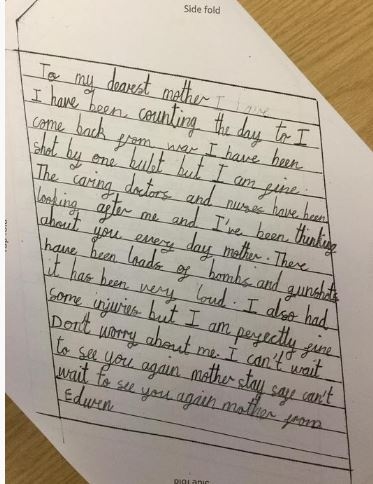 Side fold
To my dearest mother I have
I have been counting the day to I
come back from war I have been
shot by one bullet but I am fine.
The caring doctors and nurses have been
looking after me and I've been thinking
about you every day mother. There
have been loads of bombs and gunshots
it has been very loud. I also had
some injuries but I am perfectly fine
Don't worry about me. I can't wait
to see you again mother stay safe can't
wait to see you again mother from
Edwen